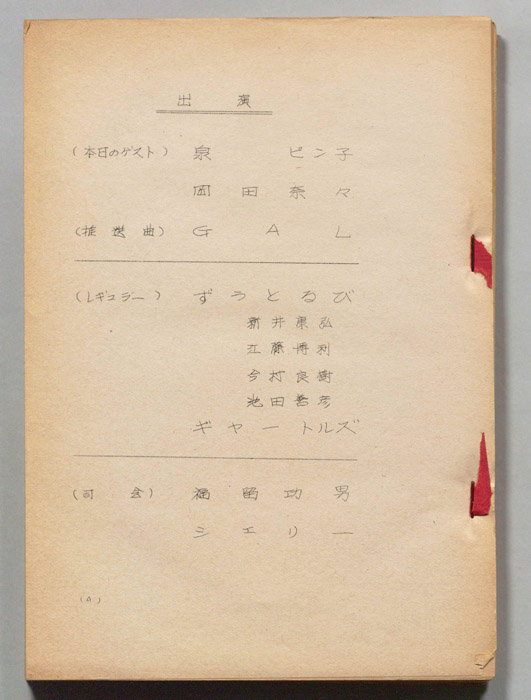 出演
(本日のゲスト) 泉 ピン子
岡田奈々
(推選曲) GAL
(レギュラー) ずうとるび
新井康弘
江藤博利
今村良樹
池田善彦
ギャートルズ
(司会) 福留功男
シェリー